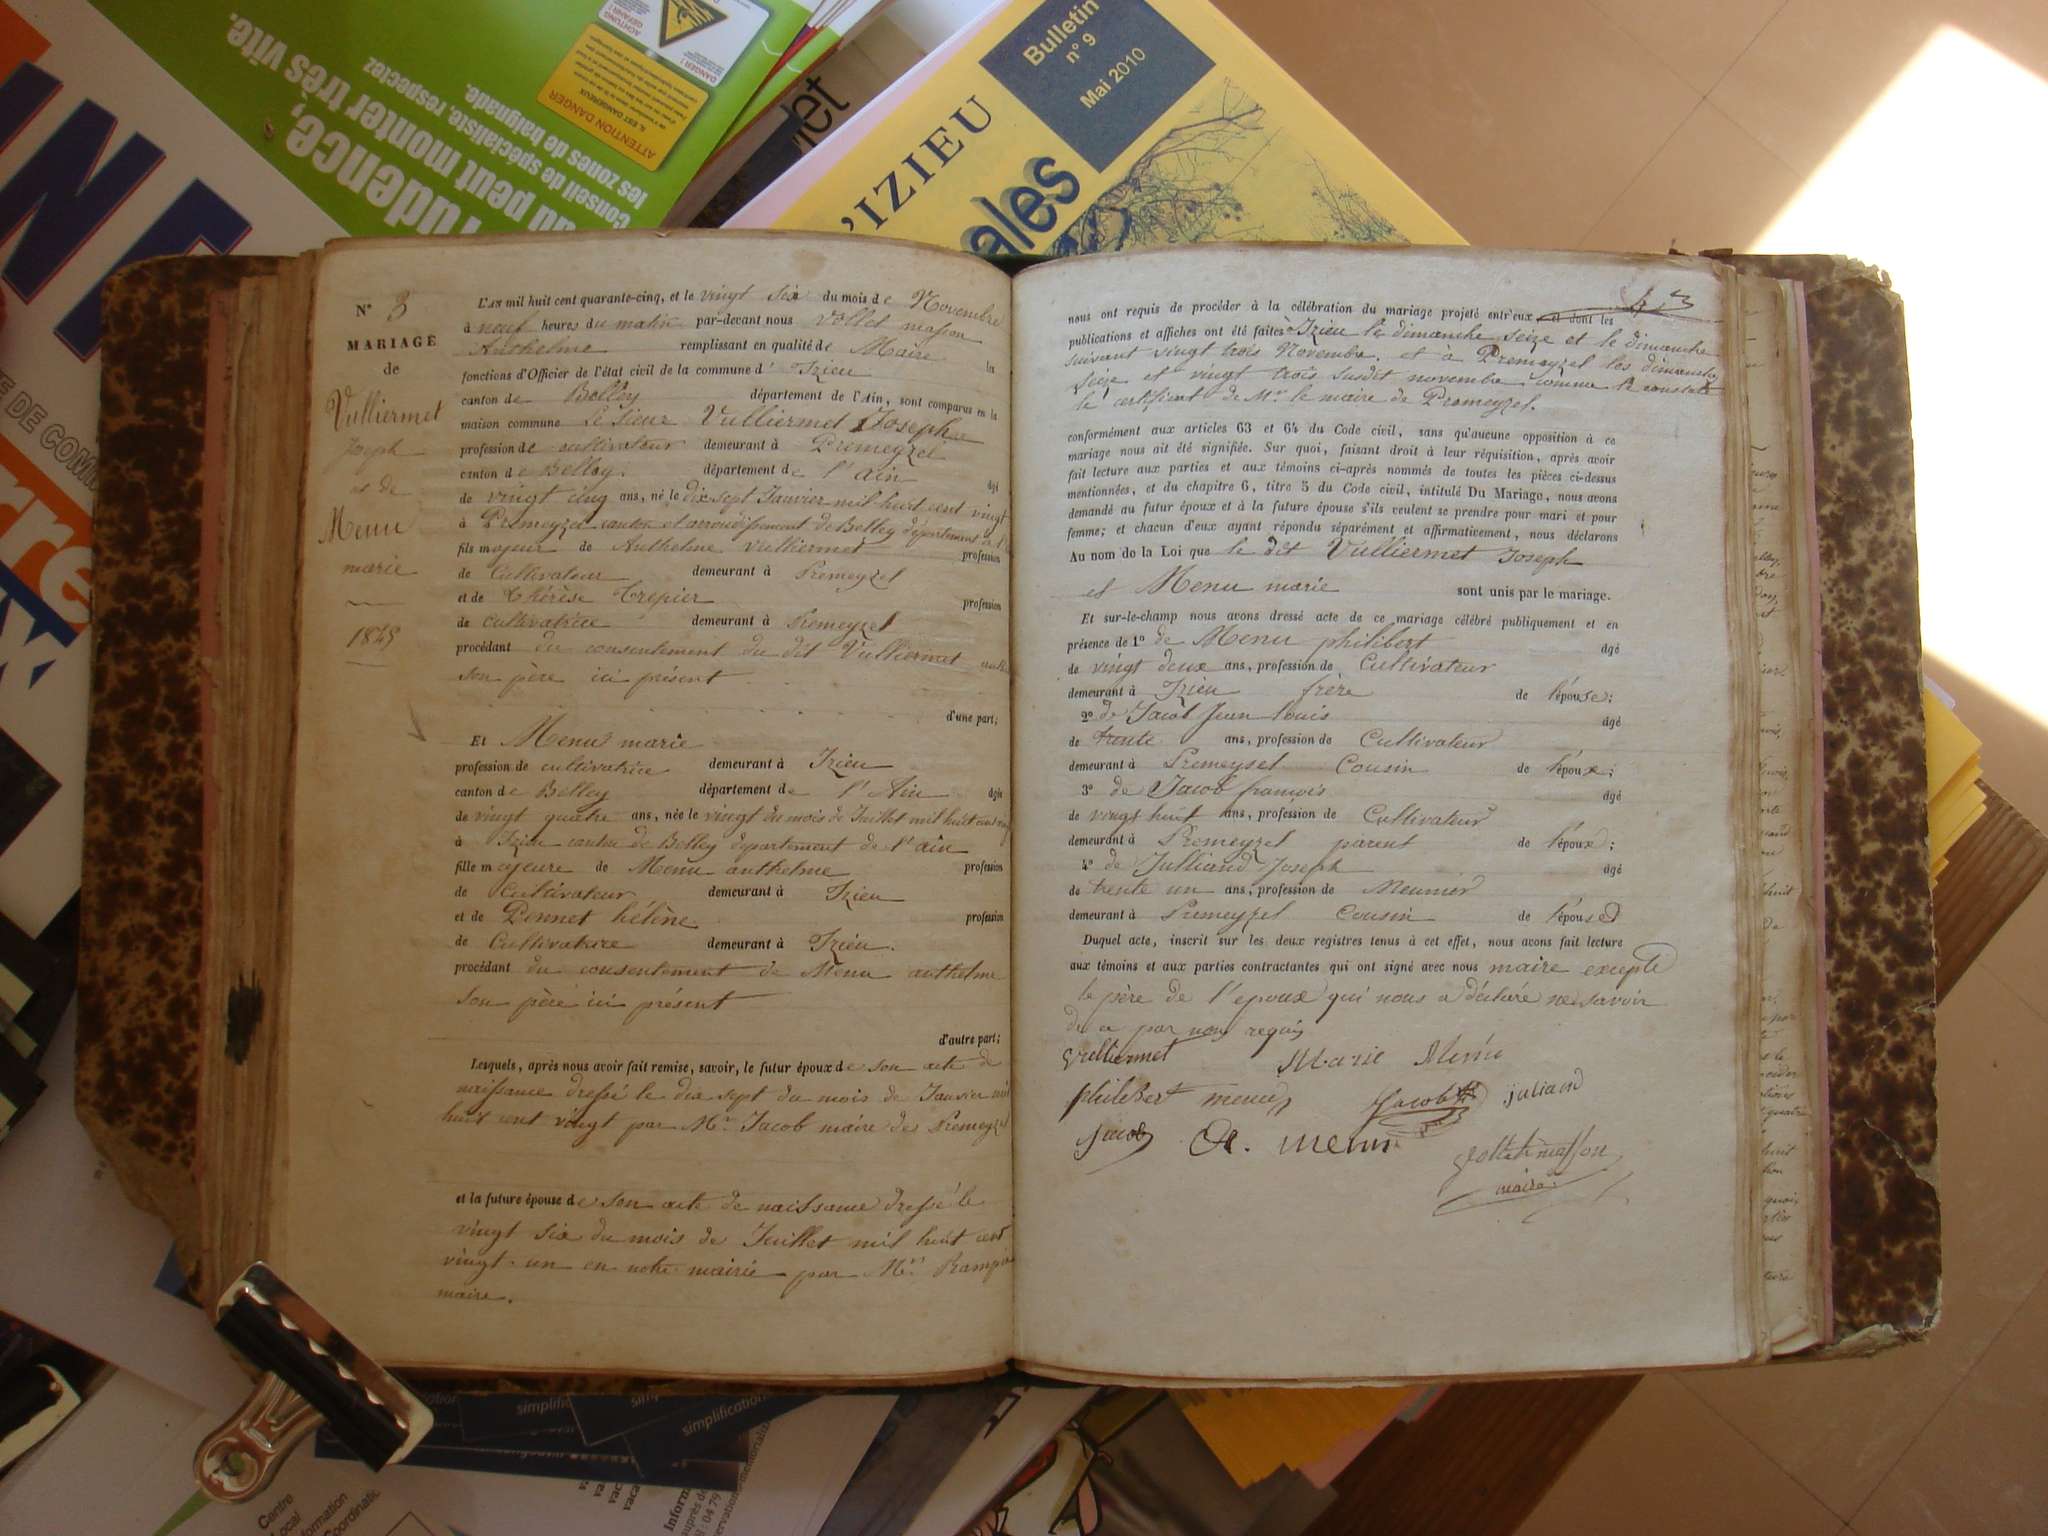 ATTENTION DANGER
IL EST DANGEREUX
DANGER !
ACHTUNG
GEFAHR !
rudence,
au peut monter très vite.
conseil de spécialiste, respectez
les zones de baignade.
Bulletin
n° 9
Mai 2010
'IZIEU
ales
N° 3
MARIAGE
de
Vulliermet
Joseph
et de
Menu
marie
1845
L'AN mil huit cent quarante-cinq, et le vingt six du mois de Novembre
à neuf heures du matin par-devant nous Vollet masson
Anthelme remplissant en qualité de Maire les
fonctions d'Officier de l'état civil de la commune d' Izieu
canton de Belley département de l'Ain, sont comparus en la
maison commune le sieur Vulliermet Joseph
profession de cultivateur demeurant à Premeyzel
canton de Belley. département de l'ain âgé
de vingt cinq ans, né le dix sept Janvier mil huit cent vingt
à Premeyzel canton et arrondissement de Belley département de l'
fils majeur de Anthelme Vulliermet profession
de Cultivateur demeurant à Premeyzel
et de thérèse trepier profession
de cultivatrice demeurant à Premeyzel
procédant du consentement du dit Vulliermet
son père ici présent
d'une part;
Et Menu marie
profession de cultivatrice demeurant à Izieu
canton de Belley département de l'Ain âgée
de vingt quatre ans, née le vingt du mois de Juillet mil huit cent
à Izieu canton de Belley département de l'ain
fille majeure de Menu anthelme profession
de Cultivateur demeurant à Izieu
et de Pinnet hélène profession
de Cultivatrice demeurant à Izieu.
procédant du consentement de Menu anthelme
son père ici présent
d'autre part;
Lesquels, après nous avoir fait remise, savoir, le futur époux de son acte de
naissance dressé le dix sept du mois de Janvier mil
huit cent vingt par Mr. Jacob maire de Premeyzel
et la future épouse de son acte de naissance dressé le
vingt six du mois de Juillet mil huit cent
vingt-un en notre mairie par Mr.
maire.
nous ont requis de procéder à la célébration du mariage projeté entr'eux et dont les
publications et affiches ont été faites à Izieu le dimanche seize et le dimanche
suivant vingt trois Novembre. et à Premeyzel les dimanches
seize et vingt trois susdit novembre comme le constate
le certificat de Mr le maire de Premeyzel.
conformément aux articles 63 et 64 du Code civil, sans qu'aucune opposition à ce
mariage nous ait été signifiée. Sur quoi, faisant droit à leur réquisition, après avoir
fait lecture aux parties et aux témoins ci-après nommés de toutes les pièces ci-dessus
mentionnées, et du chapitre 6, titre 5 du Code civil, intitulé Du Mariage, nous avons
demandé au futur époux et à la future épouse s'ils veulent se prendre pour mari et pour
femme; et chacun d'eux ayant répondu séparément et affirmativement, nous déclarons
Au nom de la Loi que le dit Vulliermet Joseph
et Menu marie sont unis par le mariage.
Et sur-le-champ nous avons dressé acte de ce mariage célébré publiquement et en
présence de 1° de Menu philibert âgé
de vingt deux ans, profession de Cultivateur
demeurant à Izieu frère de l'épouse;
2° de Jacob Jean louis âgé
de trente ans, profession de Cultivateur
demeurant à Premeyzel Cousin de l'époux;
3° de Jacob francois âgé
de vingt huit ans, profession de Cultivateur
demeurant à Premeyzel parent de l'époux;
4° de Julliand Joseph âgé
de trente un ans, profession de Meunier
demeurant à Premeyzel Cousin de l'épouse
Duquel acte, inscrit sur les deux registres tenus à cet effet, nous avons fait lecture
aux témoins et aux parties contractantes qui ont signé avec nous maire excepté
le père de l'époux qui nous a déclaré ne savoir
de ce par nous requis
Vulliermet Marie Menu
philibert menu Jacob juliand
Jacob A. menu Vollet masson
maire
simplific
simplification
Centre
Local
Information
Coordination